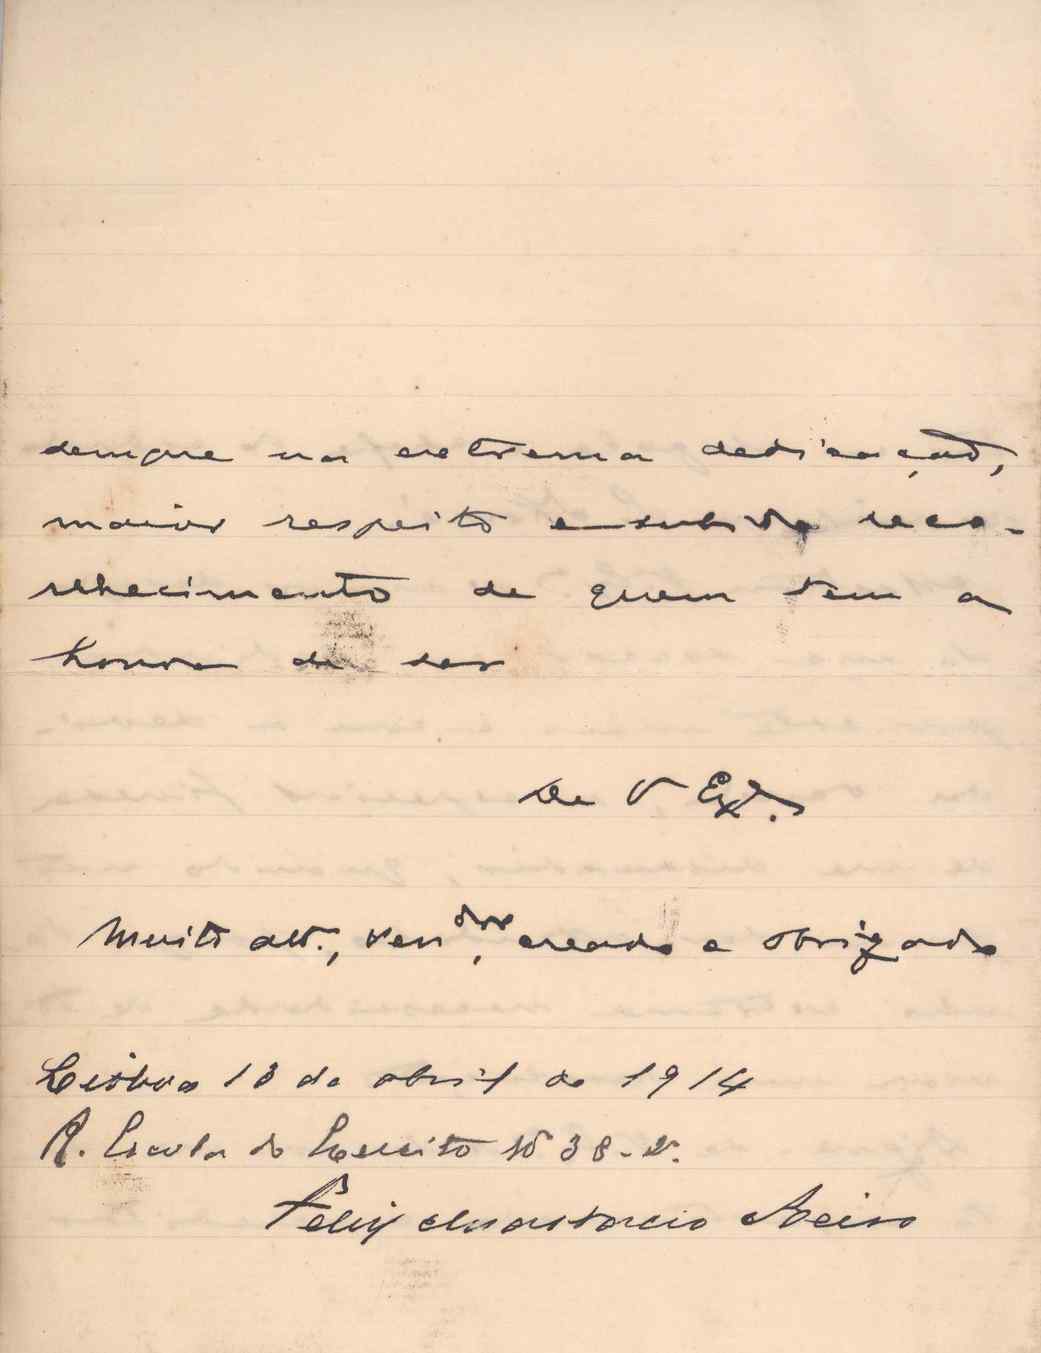 sempre na extrema dedicação,
maior respeito e subido reco-
nhecimento de quem tem a
honra de ser
De V Exª.
Muito attº., vendor, creado e obrigado
Lisboa 13 de abril de 1914
R. Escola do Exercito Nº 38-2º.
Felix Anastacio